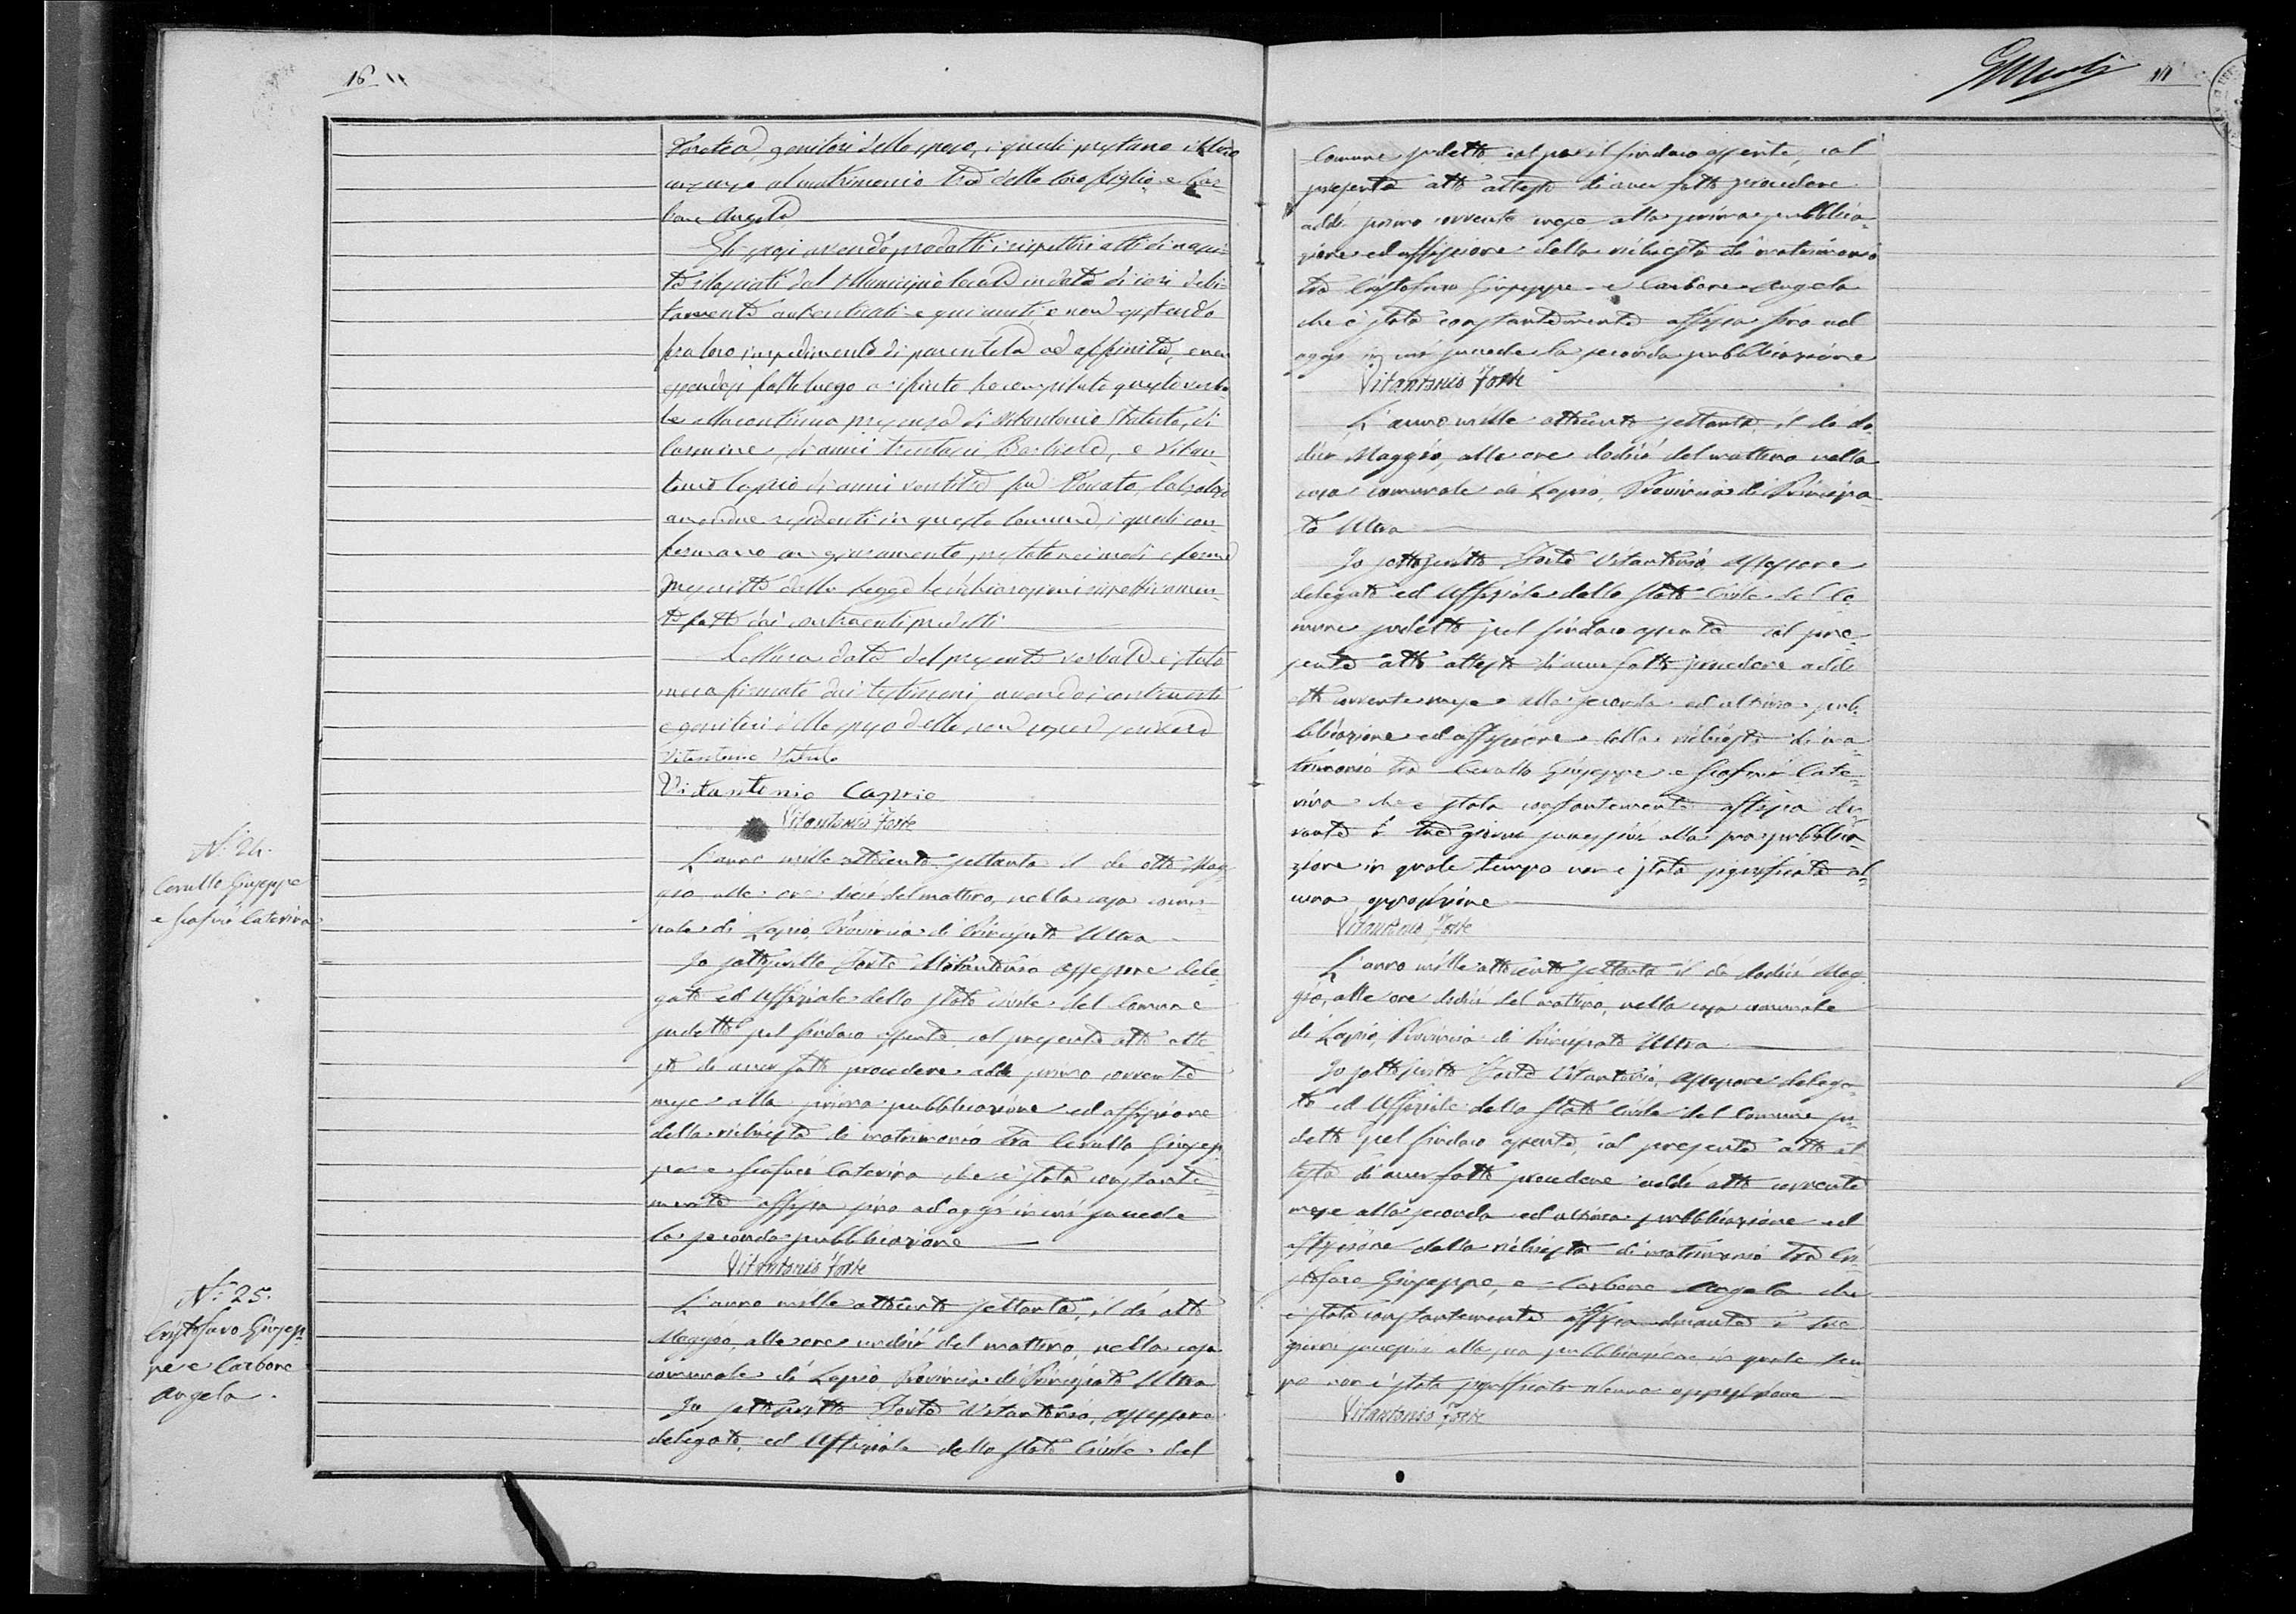 16
Dorotea, genitori dello sposo, i quali prestano il loro
consenso al matrimonio tra detto loro figlio e Car=
bone Angela
Gli sposi avendo prodotti i rispettivi atti di nasci=
ta rilasciati dal Municipio locale in data di ieri debi=
tamente autenticati e quinanti e non esistendo
fra loro impedimento di parentela od affinità, e non
essendosi fatto luogo a rifiuto ho compilato questo verba
le alla continua presenza di Vitantonio Statuto, di
Carmine, di anni trentasei Bracciale, e Vitan=
tonio Caprio di anni ventitre fu Donato, Calzolajo
amendue residenti in questo Comune, i quali con=
fermano con giuramento prestato nei modi e forme
prescritte dalla Legge le dichiarazioni rispettivamen=
te fatte dai contraenti predetti
Lettura data del presente verbale è stato
meco firmato dai testimoni, avendo i contraenti
e genitori dello sposo detto non sapere scrivere
Vitantonio
Vitantonio Caprio
Vitantonio Forte
N.° 24.
Cerullo Giuseppe
e Caterina
L'anno mille ottocento settanta il dì otto Mag=
gio, alle ore dieci del mattino, nella casa comu=
nale di Lapio, Provincia di Principato Ultra
Io sottoscritto Forte Vitantonio Assessore dele=
gato ed Uffiziale dello Stato Civile del Comune
sudetto pel Sindaco assente, col presente atto atte=
sto di aver fatto procedere addì primo corrente
mese alla prima pubblicazione ed affissione
della richiesta di matrimonio tra Cerullo Giusep=
pe e Caterina che è stata constante=
mente affissa sino ad oggi in cui succede
la seconda pubblicazione
Vitantonio Forte
N.° 25.
Cristofaro Giusep=
pe e Carbone
Angela.
L'anno mille ottocento settanta, il dì otto
Maggio, alle ore undici del mattino, nella casa
comunale di Lapio, Provincia di Principato Ultra
Io sottoscritto Forte Vitantonio, Assessore
delegato, ed Uffiziale dello Stato Civile del
Comune sudetto, col pel Sindaco assente, col
presente atto attesto di aver fatto procedere
addì primo corrente mese alla prima pubblica=
zione ed affissione della richiesta di matrimonio
tra Cristofaro Giuseppe e Carbone Angela
che è stata constantemente affissa sino ad
oggi in cui succede la seconda pubblicazione
Vitantonio Forte
L'anno mille ottocento settanta, il dì do=
dici Maggio, alle ore dodici del mattino nella
casa comunale di Lapio, Provincia di Principa=
to Ultra
Io sottoscritto Forte Vitantonio Assessore
delegato ed Uffiziale dello Stato Civile del Co=
mune sudetto pel Sindaco assente col pre=
sente atto attesto di aver fatto procedere addì
otto corrente mese alla seconda ed ultima pub=
blicazione ed affissione della richiesta di ma=
trimonio tra Cerullo Giuseppe e Cate=
rina che è stata constantemente affissa du=
rante i tre giorni successivi alla sua pubblica=
zione in quale tempo non è stata significata al=
cuna opposizione
Vitantonio Forte
L'anno mille ottocento settanta il dì dodici Mag=
gio, alle ore dodici del mattino, nella casa comunale
di Lapio, Provincia di Principato Ultra
Io sottoscritto Forte Vitantonio, Assessore delega=
to ed Uffiziale dello Stato Civile del Comune su=
detto pel Sindaco assente, col presente atto at=
testo di aver fatto procedere addì otto corrente
mese alla seconda ed ultima pubblicazione ed
affissione della richiesta di matrimonio tra Cri=
stofaro Giuseppe, e Carbone Angela che
è stata constantemente affissa durante i tre
giorni successivi alla sua pubblicazione in quale tem=
po non è stata significata alcuna opposizione
Vitantonio Forte